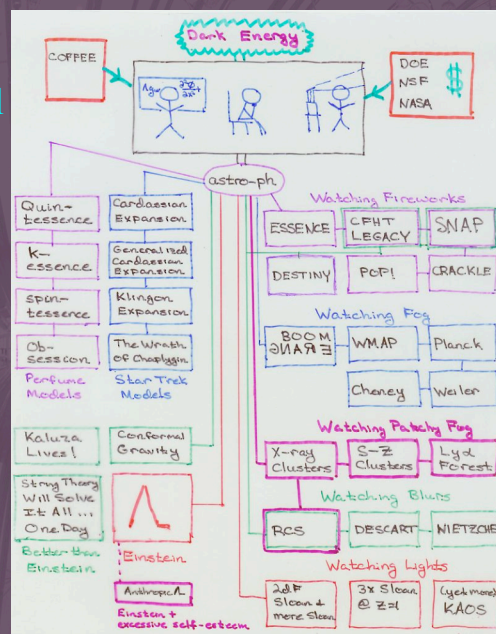 Dark Energy
COFFEE
DOE
NSF
NASA
$
astro-ph
Quin-
tessence
k-
essence
spin-
tessence
Ob-
session
Perfume
Models
Cardassian
Expansion
Generalized
Cardassian
Expansion
Klingon
Expansion
The Wrath
of Chaplygin
Star Trek
Models
Kaluza
Lives!
String Theory
Will Solve
It All ...
One Day
Better than
Einstein
Conformal
Gravity
Einstein
Anthropic Λ
Einstein +
excessive self-esteem
Watching Fireworks
ESSENCE
CFHT
LEGACY
SNAP
DESTINY
POP!
CRACKLE
Watching Fog
BOOM
ERANG
WMAP
Planck
Cheney
Weiler
Watching Patchy Fog
X-ray
Clusters
S-Z
Clusters
Lyα
Forest
Watching Blurs
RCS
DESCART
NIETZCHE
Watching Lights
2dF
Sloan &
more Sloan
3x Sloan
@ Z=1
(yet more)
KAOS